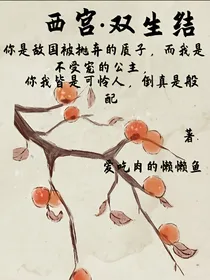 西宫·双生结
你是敌国被抛弃的质子，而我是
不受宠的公主，
你我皆是可怜人，倒真是般
配
著.
爱吃肉的懒懒鱼